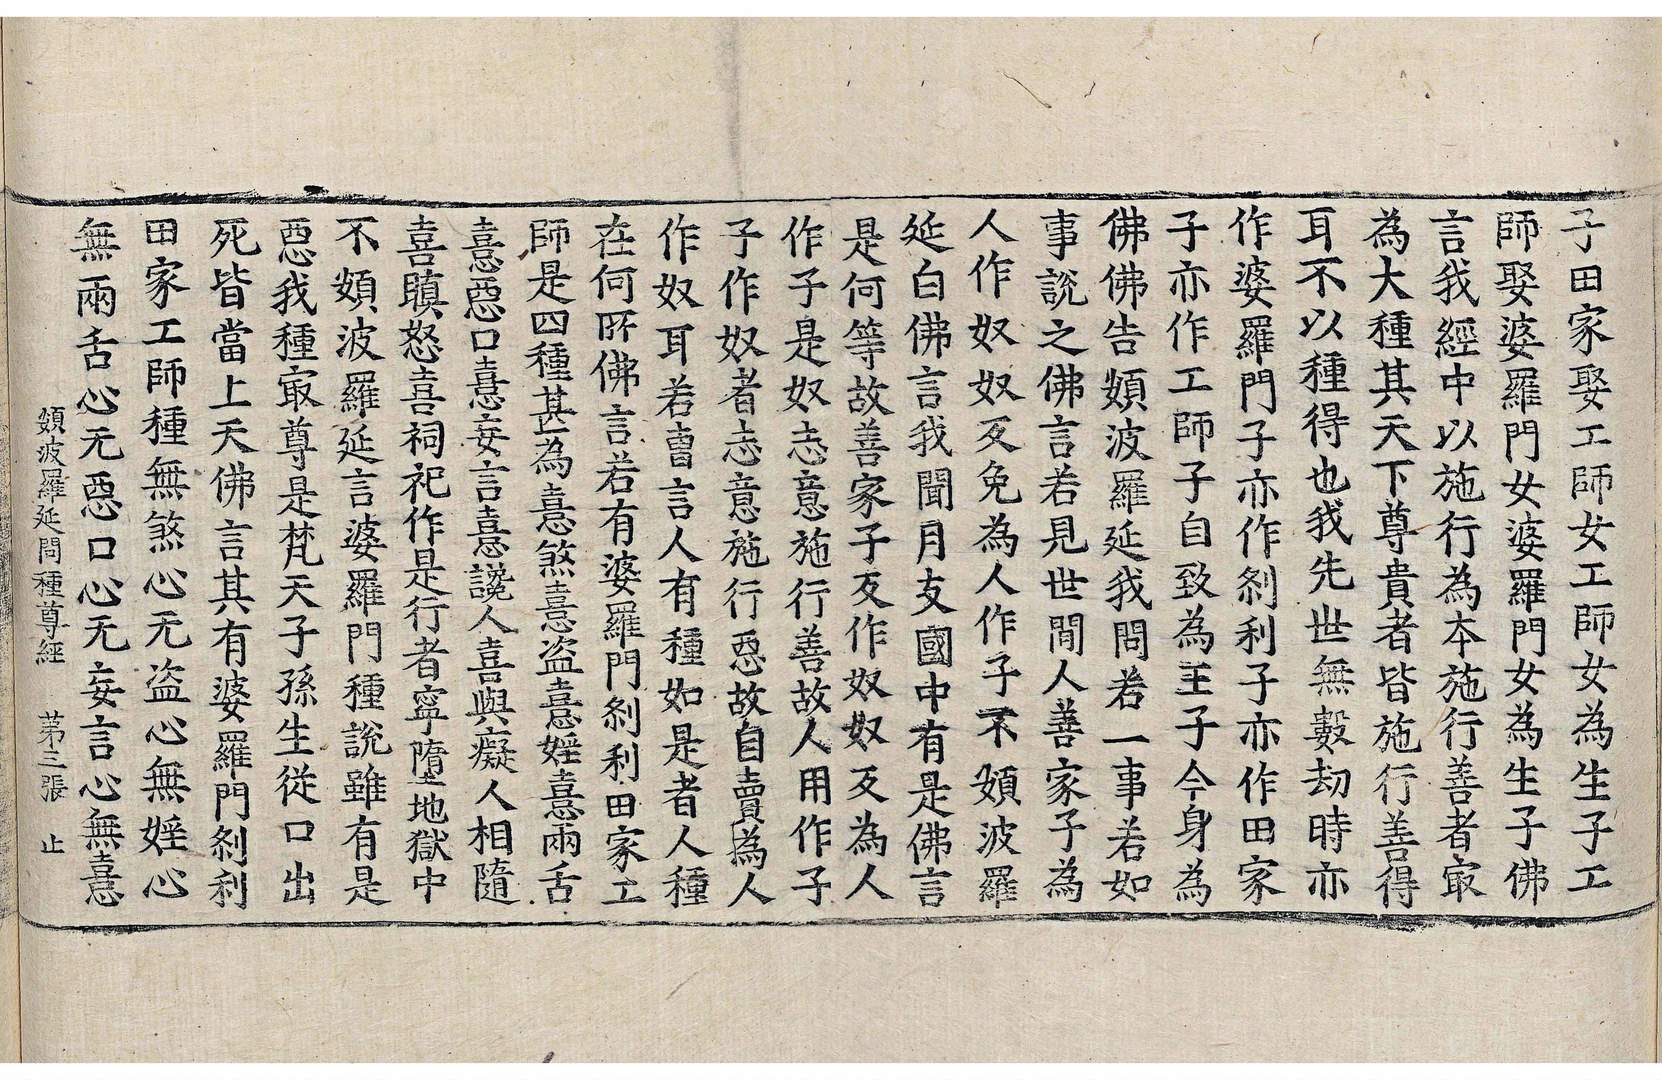 子田家娶工師女工師女為生子工
師娶婆羅門女婆羅門女為生子佛
言我經中以施行為本施行善者㝡
為大種其天下尊貴者皆施行善得
耳不以種得也我先世無數劫時亦
作婆羅門子亦作剎利子亦作田家
子亦作工師子自致為王子今身為
佛佛告頞波羅延我問若一事若如
事說之佛言若見世閒人善家子為
人作奴奴反免為人作子不頞波羅
延白佛言我聞月支國中有是佛言
是何等故善家子反作奴奴反為人
作子是奴忐意施行善故人用作子
子作奴者忐意施行惡故自賣為人
作奴耳若曹言人有種如是者人種
在何所佛言若有婆羅門剎利田家工
師是四種甚為憙煞憙盜憙婬憙兩舌
憙惡口憙妄言憙讒人喜與癡人相隨
喜瞋怒喜祠祀作是行者寧墮地獄中
不頞波羅延言婆羅門種說雖有是
惡我種㝡尊是梵天子孫生從口出
死皆當上天佛言其有婆羅門剎利
田家工師種無煞心无盜心無婬心
無兩舌心无惡口心无妄言心無憙
頞波羅延問種尊經 苐三張 止